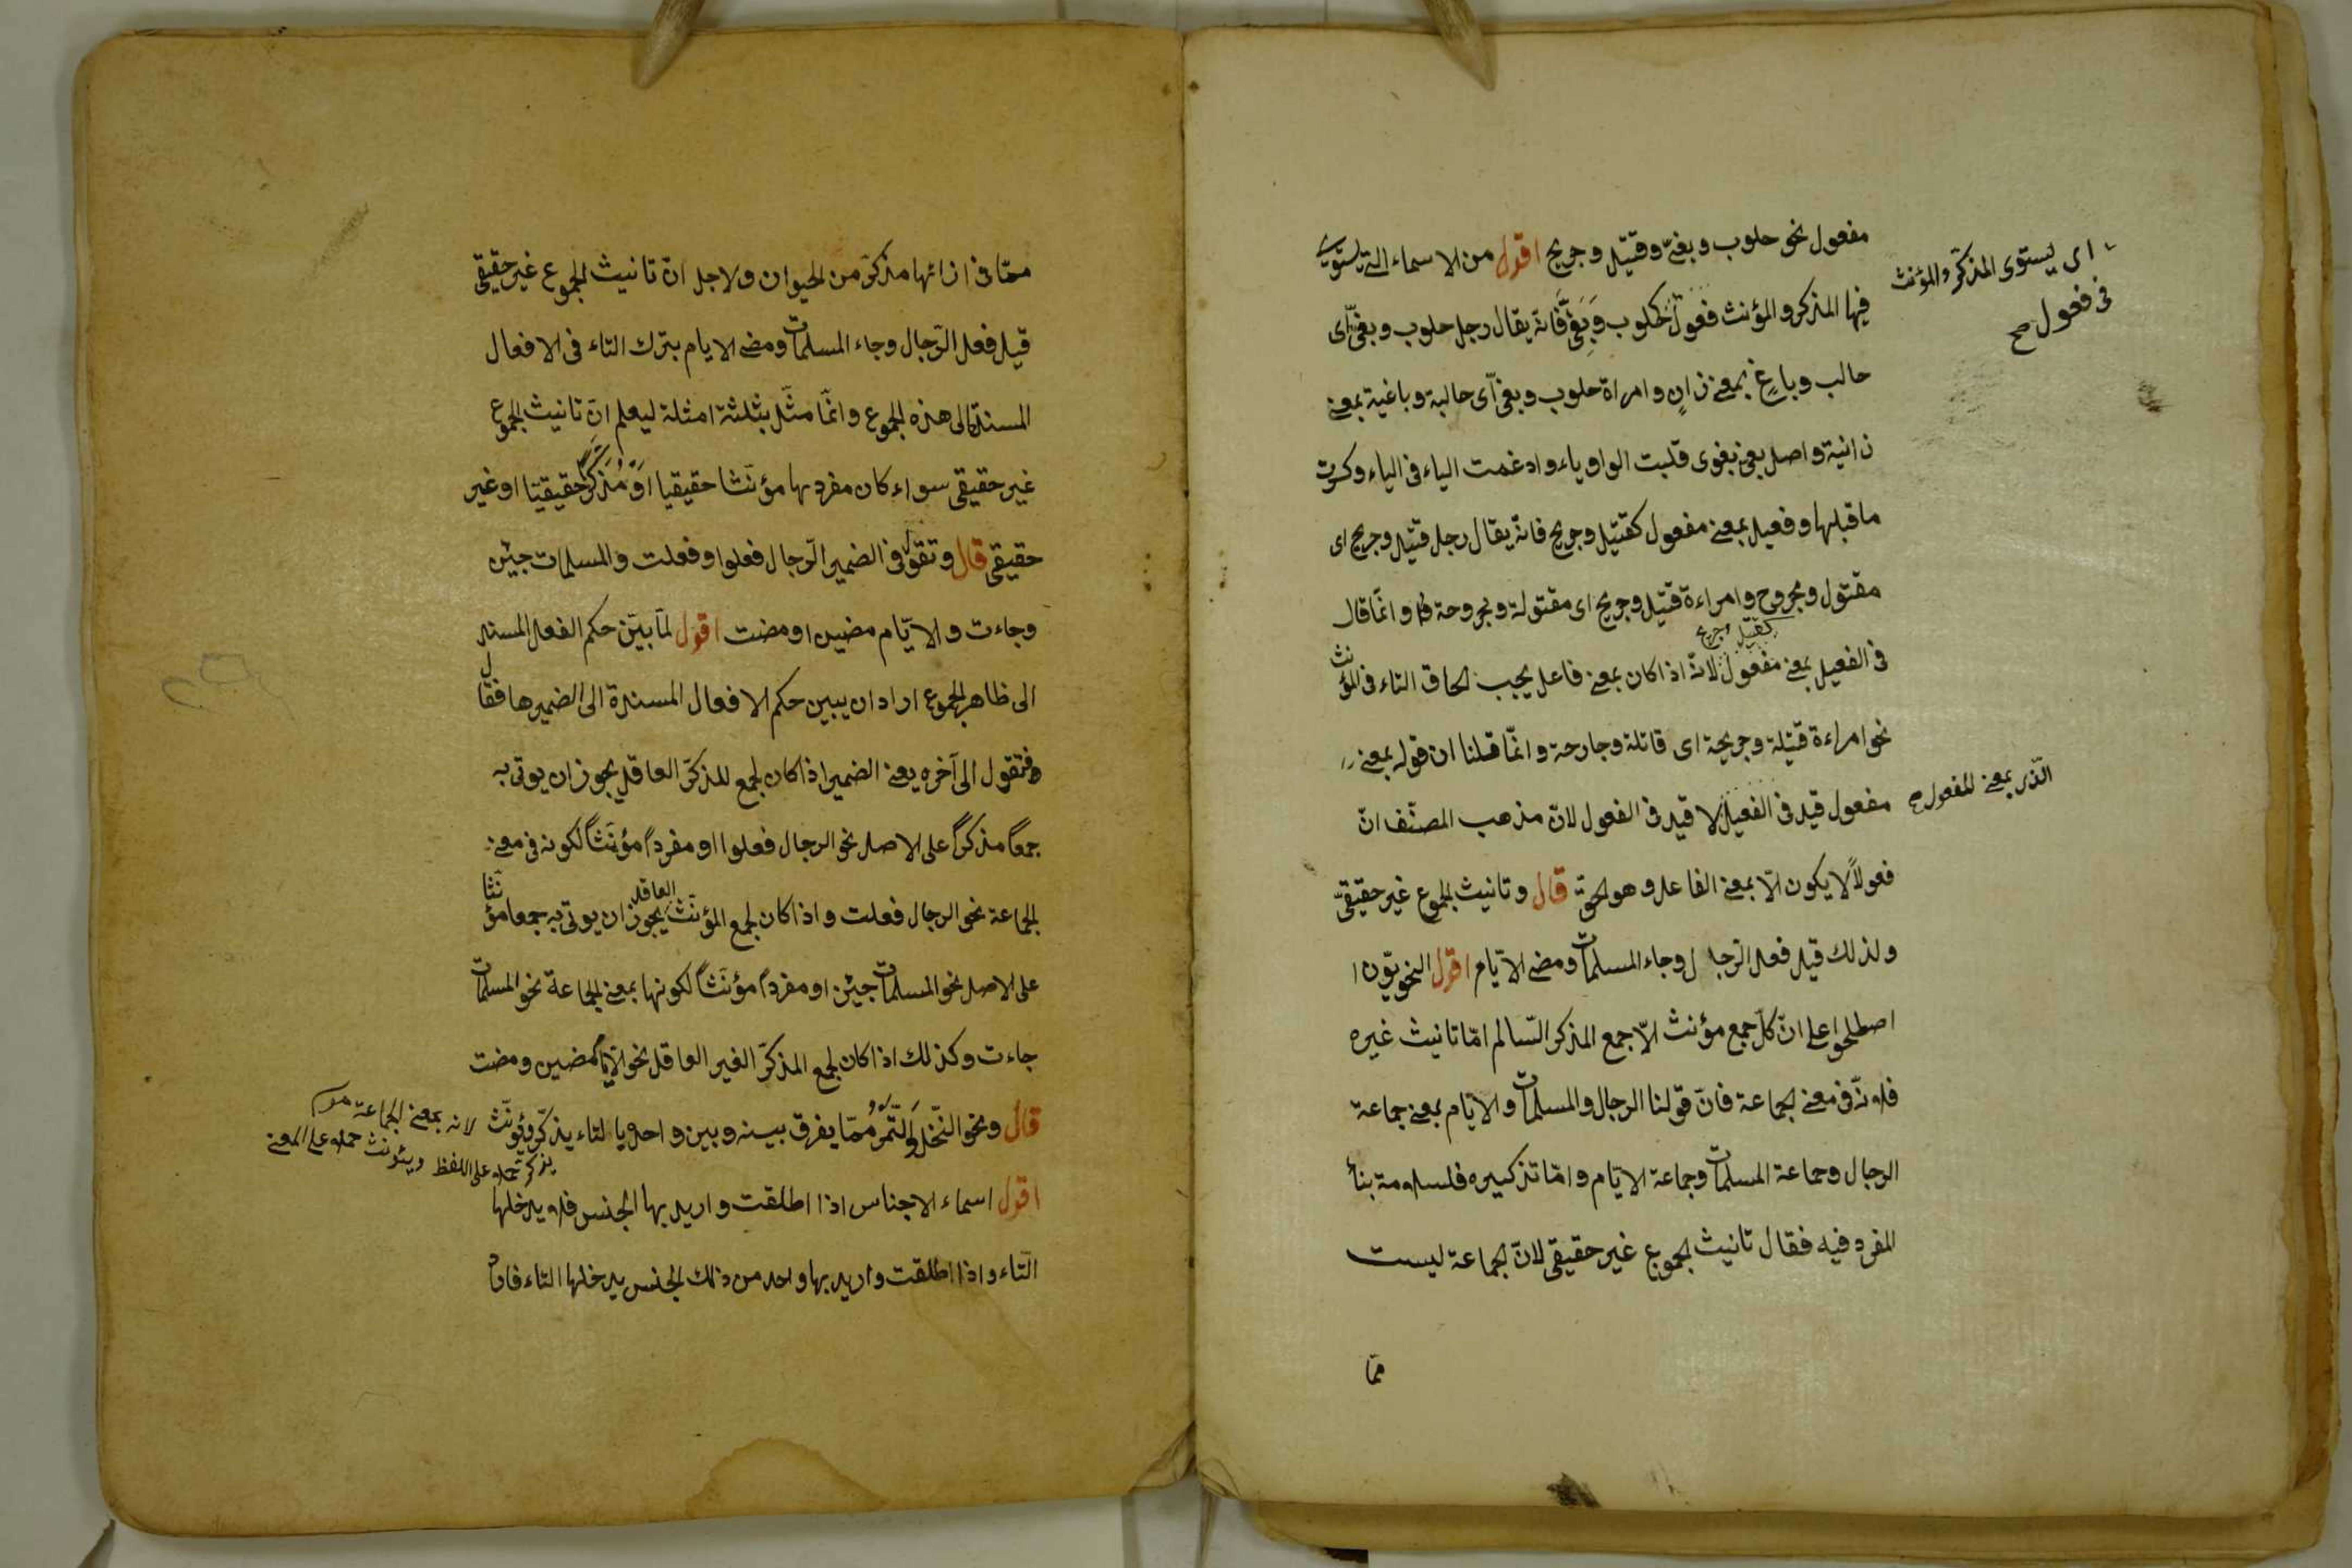 مفعول نحو حلوب وبغىّ وقتيل وجريح اقول من الاسماء التى يستوى
فيها المذكر والمؤنث فعول كحلوب وبغىّ فانّه يقال رجل حلوب وبغىّ اى
حالب وباغٍ بمعنى زانٍ وامراة حلوب وبغىّ اى حالبة وباغية بمعنى
زانية واصل بغى بغوى قلبت الواو ياء وادغمت الياء فى الياء وكسرت
ما قبلها وفعيل بمعنى مفعول كقتيل وجريح فانّه يقال رجل قتيل وجريح اى
مقتول ومجروح وامراءة قتيل وجريح اى مقتولة ومجروحة وانّما قال
كقتيل وجريح
فى الفعيل بمعنى مفعول لانّه اذا كان بمعنى فاعل يجب الحاق التاء فى المؤنث
نحو امراءة قتيلة وجريحة اى قاتلة وجارحة وانّما قلنا ان قوله بمعنى
مفعول قيد فى الفعيل لا قيد فى الفعول لانّ مذهب المصنّف انّ
فعولاً لا يكون الّا بمعنى الفاعل وهو الحقّ قال وتانيث الجموع غير حقيقىّ
ولذلك قيل فعل الرّجال وجاء المسلمات ومضى الايّام اقول النحويّون ا
اصطلحوا على انّ كلّ جمع مؤنث الّا جمع المذكر السّالم امّا تانيث غيره
فلانّه فى معنى الجماعة فانّ قولنا الرجال والمسلمات والايّام بمعنى جماعة
الرجال وجماعة المسلمات وجماعة الايّام وامّا تذكيره فلسلامة بناء
المفرد فيه فقال تانيث الجموع غير حقيقى لانّ الجماعة ليست
ممّا
اى يستوى المذكّر والمؤنث
فى فعول صح
الّذى بمعنى المفعول صح
ممّا فى ازائها مذكرّ من الحيوان ولاجل انّ تانيث الجموع غير حقيقى
قيل فعل الرّجال وجاء المسلمات ومضى الايام بترك التاء فى الافعال
المسندة الى هذه الجموع وانّما مثّل بثلثة امثلة ليعلم انّ تانيث الجموع
غير حقيقى سواء كان مفردها مؤنّثا حقيقيا او مُذكّرًا حقيقيّا او غير
حقيقى قال وتقول فى الضمير الرّجال فعلوا وفعلت والمسلمات جئن
وجاءت والايّام مضين او مضت اقول لمّا بيّن حكم الفعل المسند
الى ظاهر الجموع اراد ان يبين حكم الافعال المسندة الى الضميرها فقال
وتقول الى آخره يعنى الضمير اذا كان لجمع للمذكّر العاقل يجوز ان يوتى به
جمعا مذكرا على الاصل نحو الرجال فعلوا او مفردا مؤنّثا لكونه فى معنى
الجماعة نحو الرجال فعلت واذا كان لجمع المؤنّث العاقل يجوز ان يوتى به جمعا مؤنّثا
على الاصل نحو المسلمات جئن او مفردا مؤنّثا لكونها بمعنى الجماعة نحو المسلمات
جاءت وكذلك اذا كان لجمع المذكّر الغير العاقل نحو الايّام مضين ومضت
قال ونحو النّخل والتّمر ممّا يفرق بينه وبين واحده بالتاء يذكّر ويؤنّث
اقول اسماء الاجناس اذا اطلقت واريد بها الجنس فلا يدخلها
التّاء واذا اطلقت واريد بها واحد من ذلك الجنس يدخلها التاء فارادة
لانه بمعنى الجماعة
يذكر حملا على اللفظ ويئونث حملا على المعنى